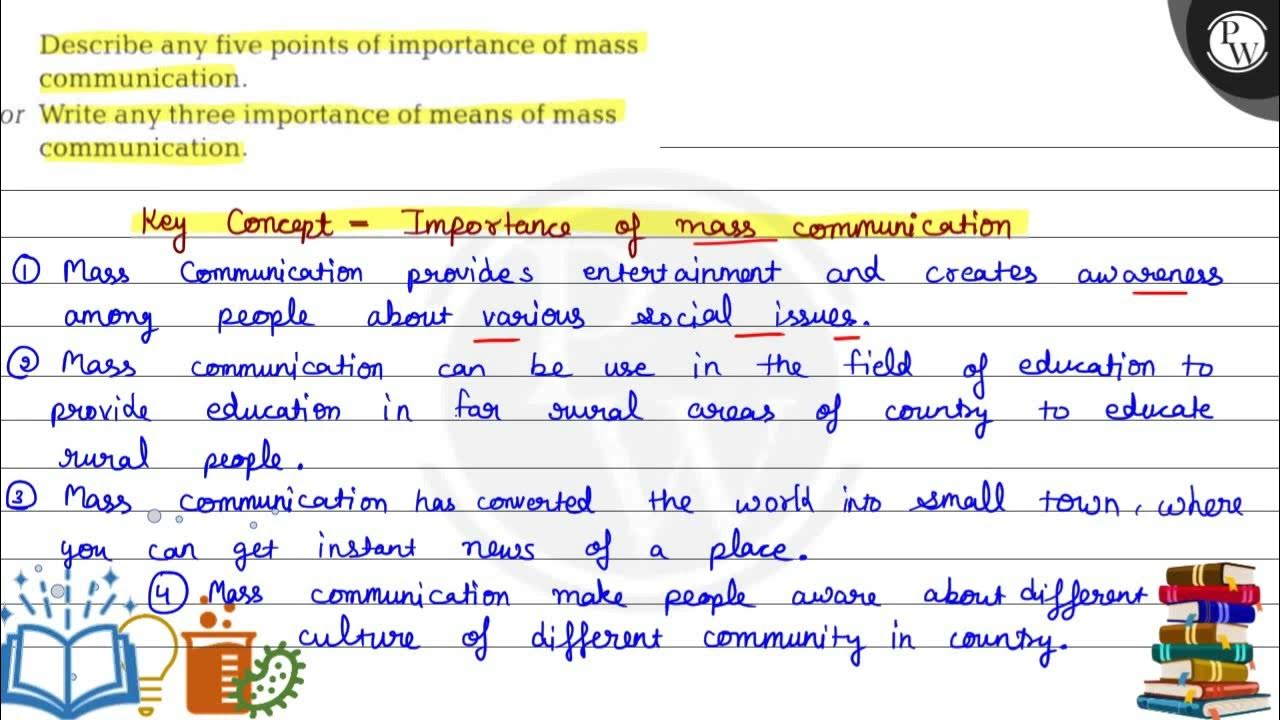 Describe any five points of importance of mass
communication.
or Write any three importance of means of mass
communication.
PW
Key Concept - Importance of mass communication
① Mass Communication provides entertainment and creates awareness
among people about various social issues.
② Mass communication can be use in the field of education to
provide education in far rural areas of country to educate
rural people.
③ Mass communication has converted the world into small town, where
you can get instant news of a place.
④ Mass communication make people aware about different
culture of different community in country.
PW